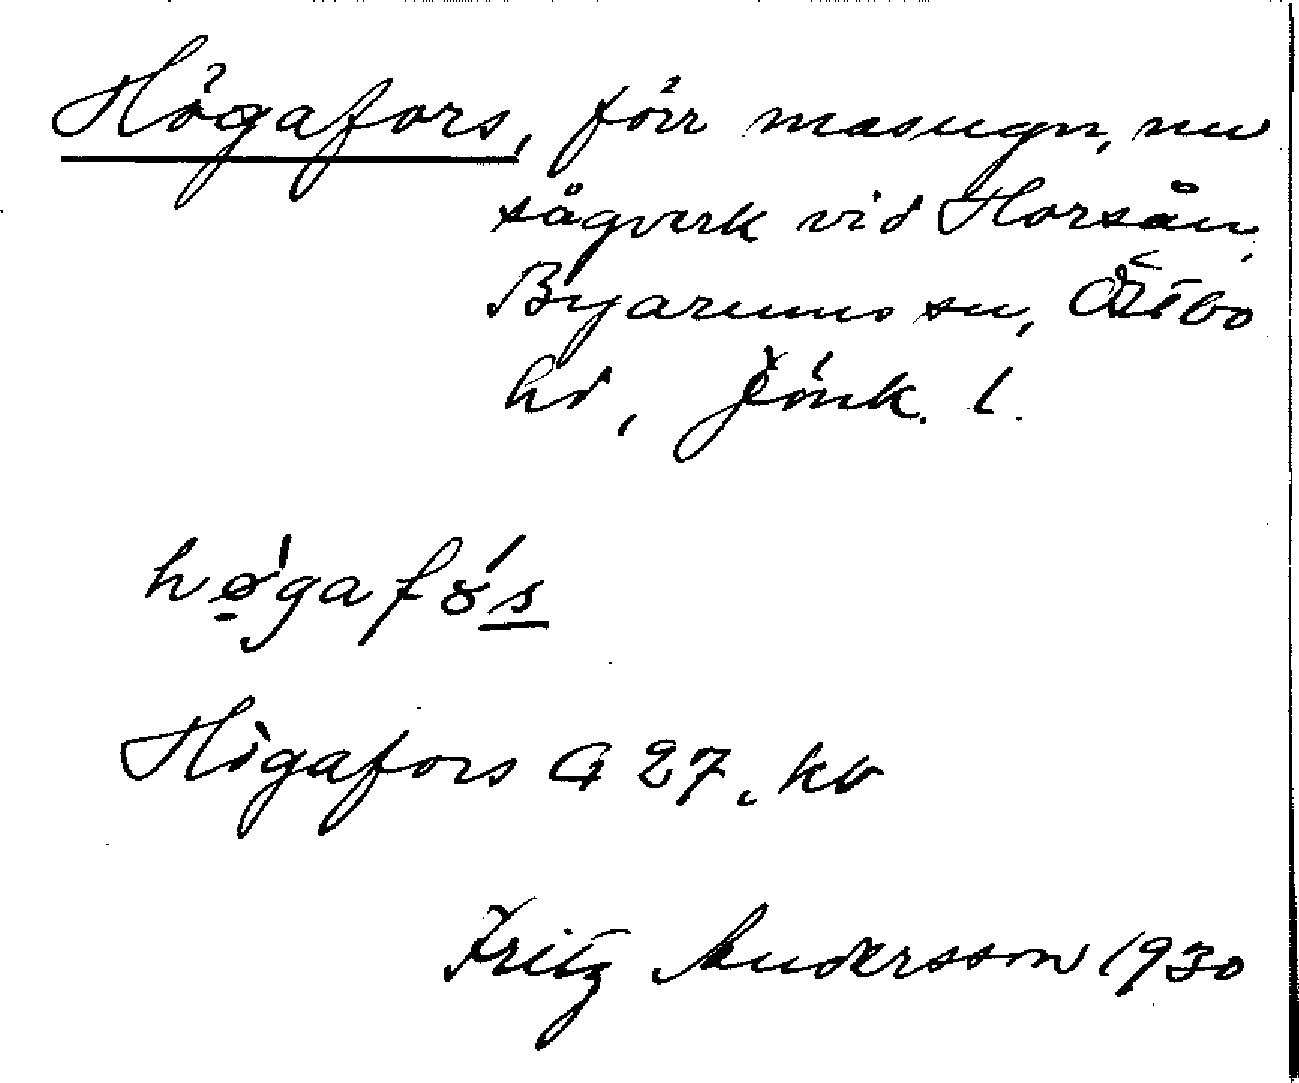 Högafors, förr masugn, nu
sågverk vid Horsån,
Byarums sn, Östbo
hd, Jönk. l.
høgafɔs
Högafors G 27. kb
Fritz Andersson 1930